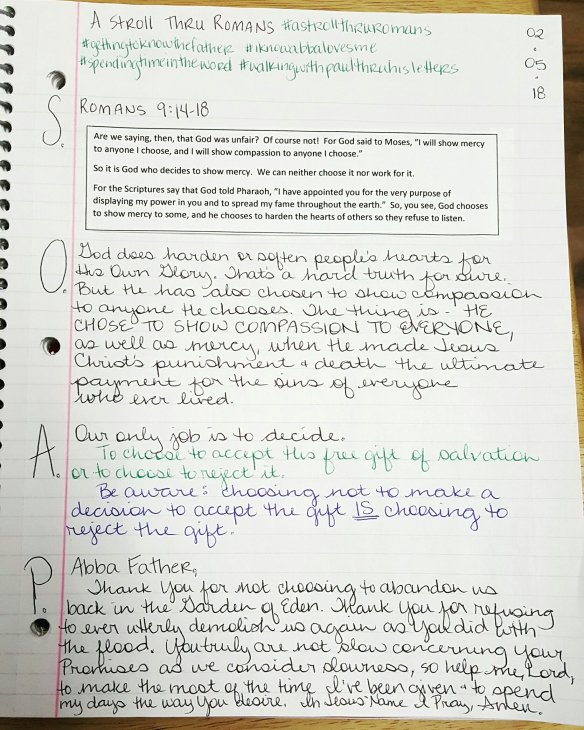 A STROLL THRU ROMANS #astrollthruromans
#gettingtoknowthefather #iknowabbalovesme
#spendingtimeintheword #walkingwithpaulthruhisletters
02
.
05
.
18
S.
ROMANS 9:14-18
Are we saying, then, that God was unfair? Of course not! For God said to Moses, "I will show mercy
to anyone I choose, and I will show compassion to anyone I choose."
So it is God who decides to show mercy. We can neither choose it nor work for it.
For the Scriptures say that God told Pharaoh, "I have appointed you for the very purpose of
displaying my power in you and to spread my fame throughout the earth." So, you see, God chooses
to show mercy to some, and he chooses to harden the hearts of others so they refuse to listen.
O.
God does harden or soften people's hearts for
His Own Glory. That's a hard truth for sure.
But He has also chosen to show compassion
to anyone He chooses. The thing is - HE
CHOSE TO SHOW COMPASSION TO EVERYONE,
as well as mercy, when He made Jesus
Christ's punishment + death the ultimate
payment for the sins of everyone
who ever lived.
A.
Our only job is to decide.
To choose to accept this free gift of salvation
or to choose to reject it.
Be aware: choosing not to make a
decision to accept the gift IS choosing to
reject the gift.
P.
Abba Father,
Thank You for not choosing to abandon us
back in the Garden of Eden. Thank You for refusing
to ever utterly demolish us again as You did with
the flood. You truly are not slow concerning Your
Promises as we consider slowness, so help me, Lord,
to make the most of the time I've been given + to spend
my days the way You desire. In Jesus' Name I Pray, Amen.